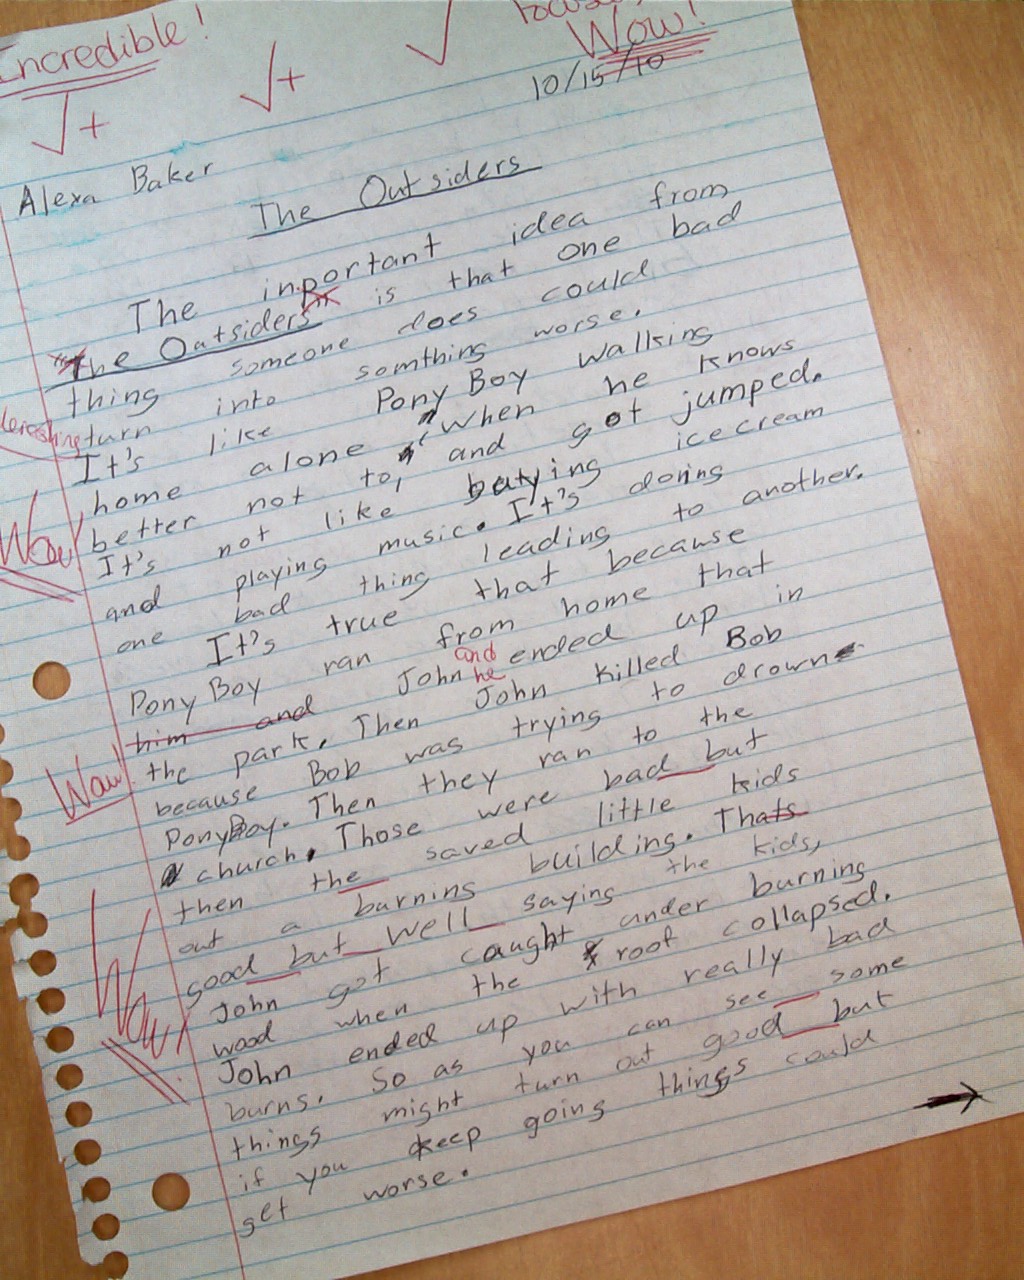 Incredible!
Wow!
√+ √+ √
10/15/10
Alexa Baker
The Outsiders
The inportant idea from
The Outsiders is that one bad
thing someone does could
turn into somthing worse.
It's like Pony Boy walking
home alone when he knows
better not to, and got jumped.
It's not like buying icecream
and playing music. It's doing
one bad thing leading to another.
It's true that because
Pony Boy ran from home that
him and John and he ended up in
the park. Then John killed Bob
because Bob was trying to drown
PonyBoy. Then they ran to the
church. Those were bad but
then the saved little kids
out a burning building. Thats
good but well saying the kids,
John got caught under burning
wood when the roof collapsed.
John ended up with really bad
burns. So as you can see some
things might turn out good but
if you keep going things could
get worse.
Wow!
Wow!
Wow!